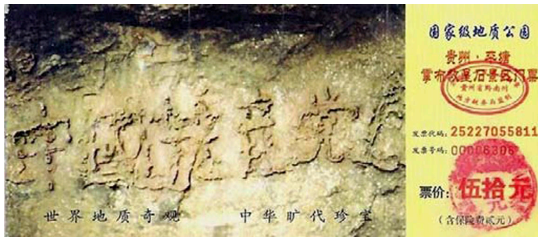 中國共産党亡
世界地质奇观 中华旷代珍宝
国家级地质公园
贵州·平塘
掌布救星石景区门票
贵州省黔南州
发票代码: 25227055811
发票号码: 00006306
票价: 伍拾元
(含保险费贰元)